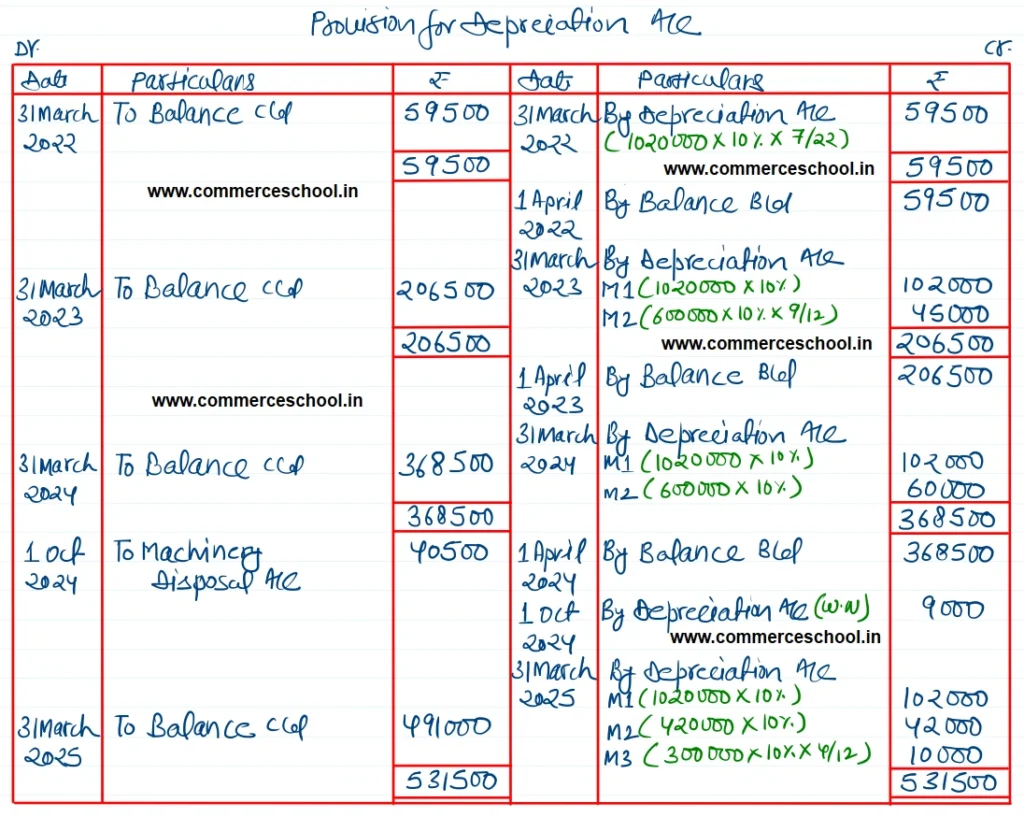 Provision for Depreciation A/c
Dr. Cr.
Date Particulars ₹ Date Particulars ₹
31 March To Balance c/d 59500 31 March By Depreciation A/c 59500
2022 2022 (1020000 x 10% x 7/22)
59500 www.commerceschool.in 59500
www.commerceschool.in 1 April By Balance B/d 59500
2022
31 March By Depreciation A/c
31 March To Balance c/d 206500 2023 M1 (1020000 x 10%) 102000
2023 M2 (600000 x 10% x 9/12) 45000
206500 www.commerceschool.in 206500
1 April By Balance B/d 206500
www.commerceschool.in 2023
31 March By Depreciation A/c
31 March To Balance c/d 368500 2024 M1 (1020000 x 10%) 102000
2024 M2 (600000 x 10%) 60000
368500 368500
1 Oct To Machinery 40500 1 April By Balance B/d 368500
2024 Disposal A/c 2024
1 Oct By Depreciation A/c (W.N) 9000
2024 www.commerceschool.in
31 March By Depreciation A/c
2025 M1 (1020000 x 10%) 102000
31 March To Balance c/d 491000 M2 (420000 x 10%) 42000
2025 M3 (300000 x 10% x 4/12) 10000
531500 531500